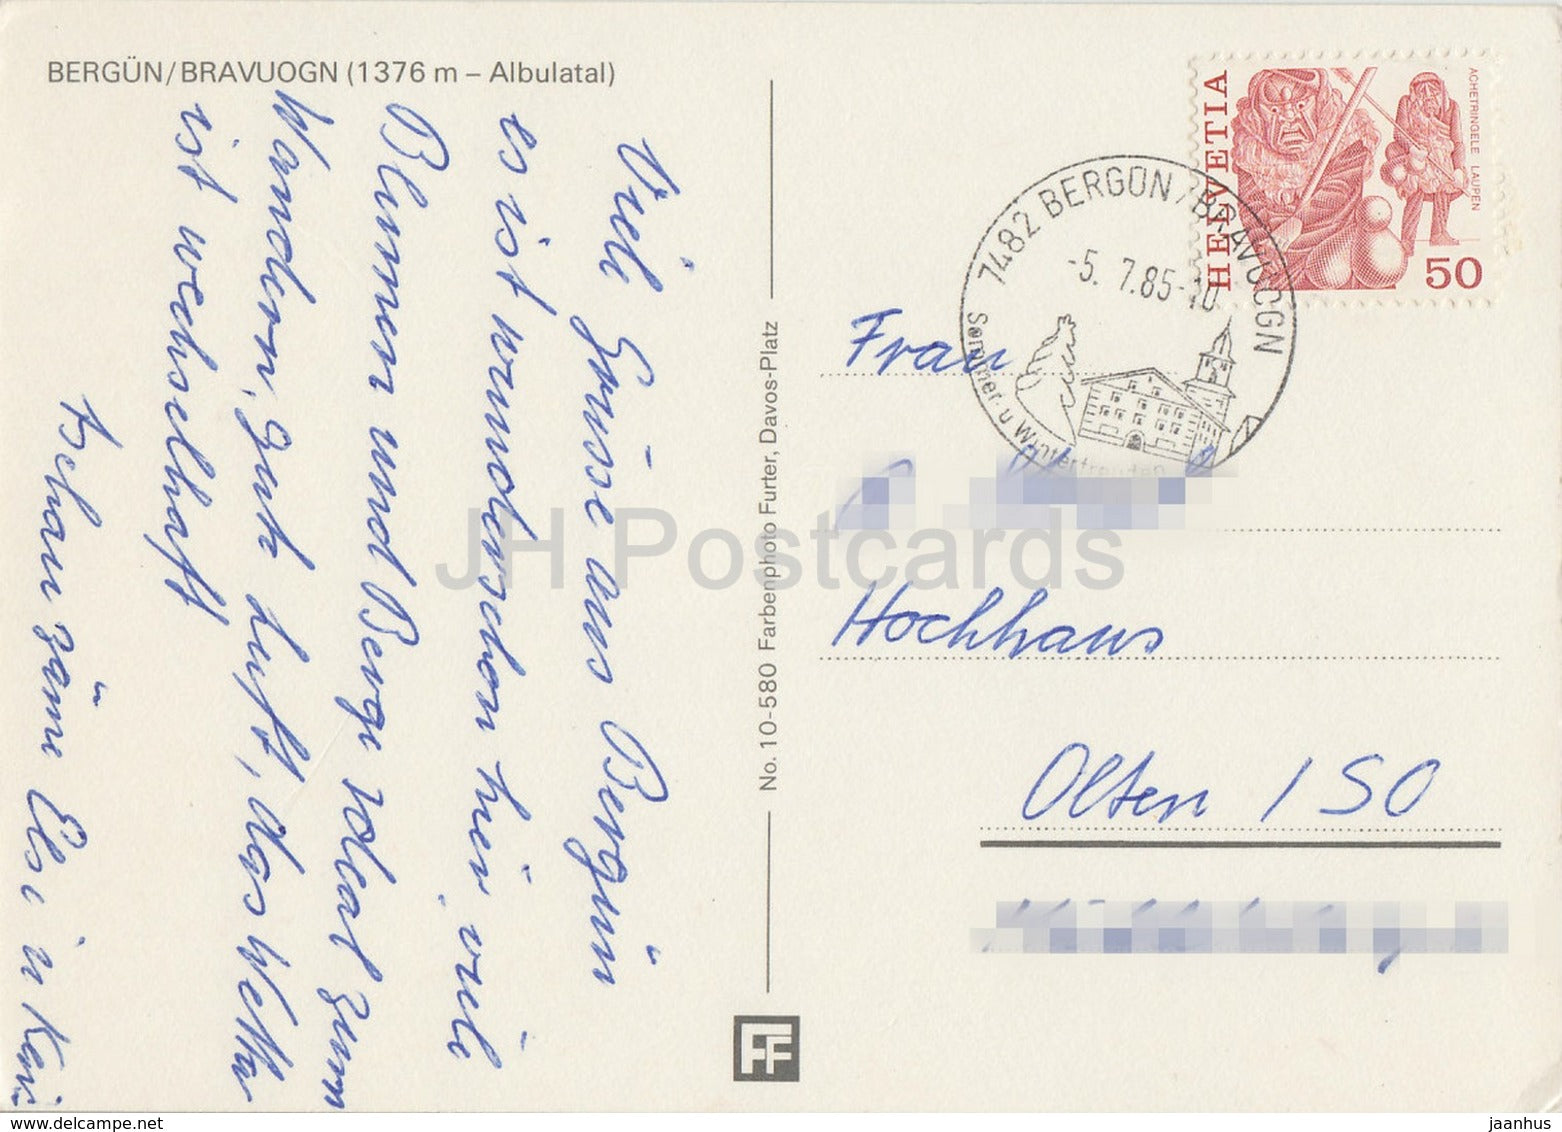 BERGÜN/BRAVUOGN (1376 m – Albulatal)
Viele Grüsse aus Bergün
es ist wunderschön hier, viele
Blumen und Berge ideal zum
Wandern, gute Luft, das Wetter
ist wechselhaft
zäme Elsi u
No. 10-580 Farbenphoto Furter, Davos-Platz
FF
HELVETIA
ACHETRINGELE LAUPEN
50
7482 BERGÜN/BRAVUOGN
-5. 7.85-10
Sommer- u Winterfreuden
Frau
Hochhaus
Olten / SO
JH Postcards
delcampe.net
jaanhus